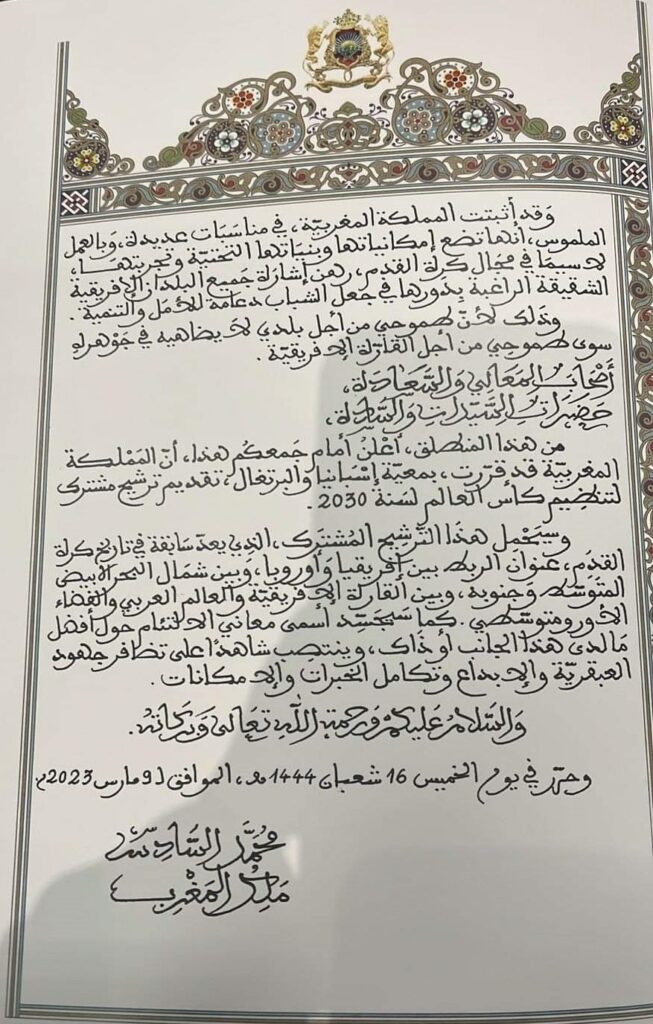 وَقد أثبتت المملكة المغربيّة، في مناسَبَات عديدة، وَبالعمل
الملموس، أنها تضع إمكانياتها وبنياتها التحتية وتجربتها،
لا سيما في مجال كرة القدم، رهن إشارة جَميع البلدان الإفريقية
الشقيقة الراغبة بدورها في جعل الشباب دعامة للأمل والتنمية.
وذَلك لأنّ طموحي من أجل بلدي لا يضاهيه في جَوْهره
سوى طموحي من أجل القارّة الإفريقيّة.
أصْحَابَ المَعَالي وَالسَّعَادَة،
حَضَرَاتِ السَّيِّدَاتِ وَالسَّادَة،
من هذا المنطلق، أعْلنُ أمام جَمعكُم هذا، أنّ المَمْلكة
المغربيّة قد قرّرت، بمعيّة إسْبانيا والبرتغال، تقديم ترشيح مشترك
لتنظيم كأس العالم لسَنة 2030.
وسيَحْمل هذَا التّرشيح المُشترَك، الذي يعدّ سَابقة في تاريخ كرة
القدَم، عنوَان الربط بين إفريقيا وَأوروبا، وَبين شمَال البحر الأبيض
المتوَسّط وَجنوبه، وبين القارة الإفريقيّة والعالم العربي والفضاء
الأورومتوسّطي. كما سَيجَسّد أسمى معاني الالتئام حول أفضل
مَا لدى هذا الجانب أو ذَاك، وينتصب شاهدًا على تظافر جهود
العبقريّة والإبداع وتكامل الخبرات والإمكانات.
وَالسَّلامُ عَليكُمْ وَرحمة اللّه تَعَالى وَبَرَكَاتُه.
وحرّر في يوم الخميس 16 شعبان 1444 هـ، الموافق لـ 9 مارس 2023م.
مُحَمَّد السَّادِسُ
مَلِكُ المَغْرِب